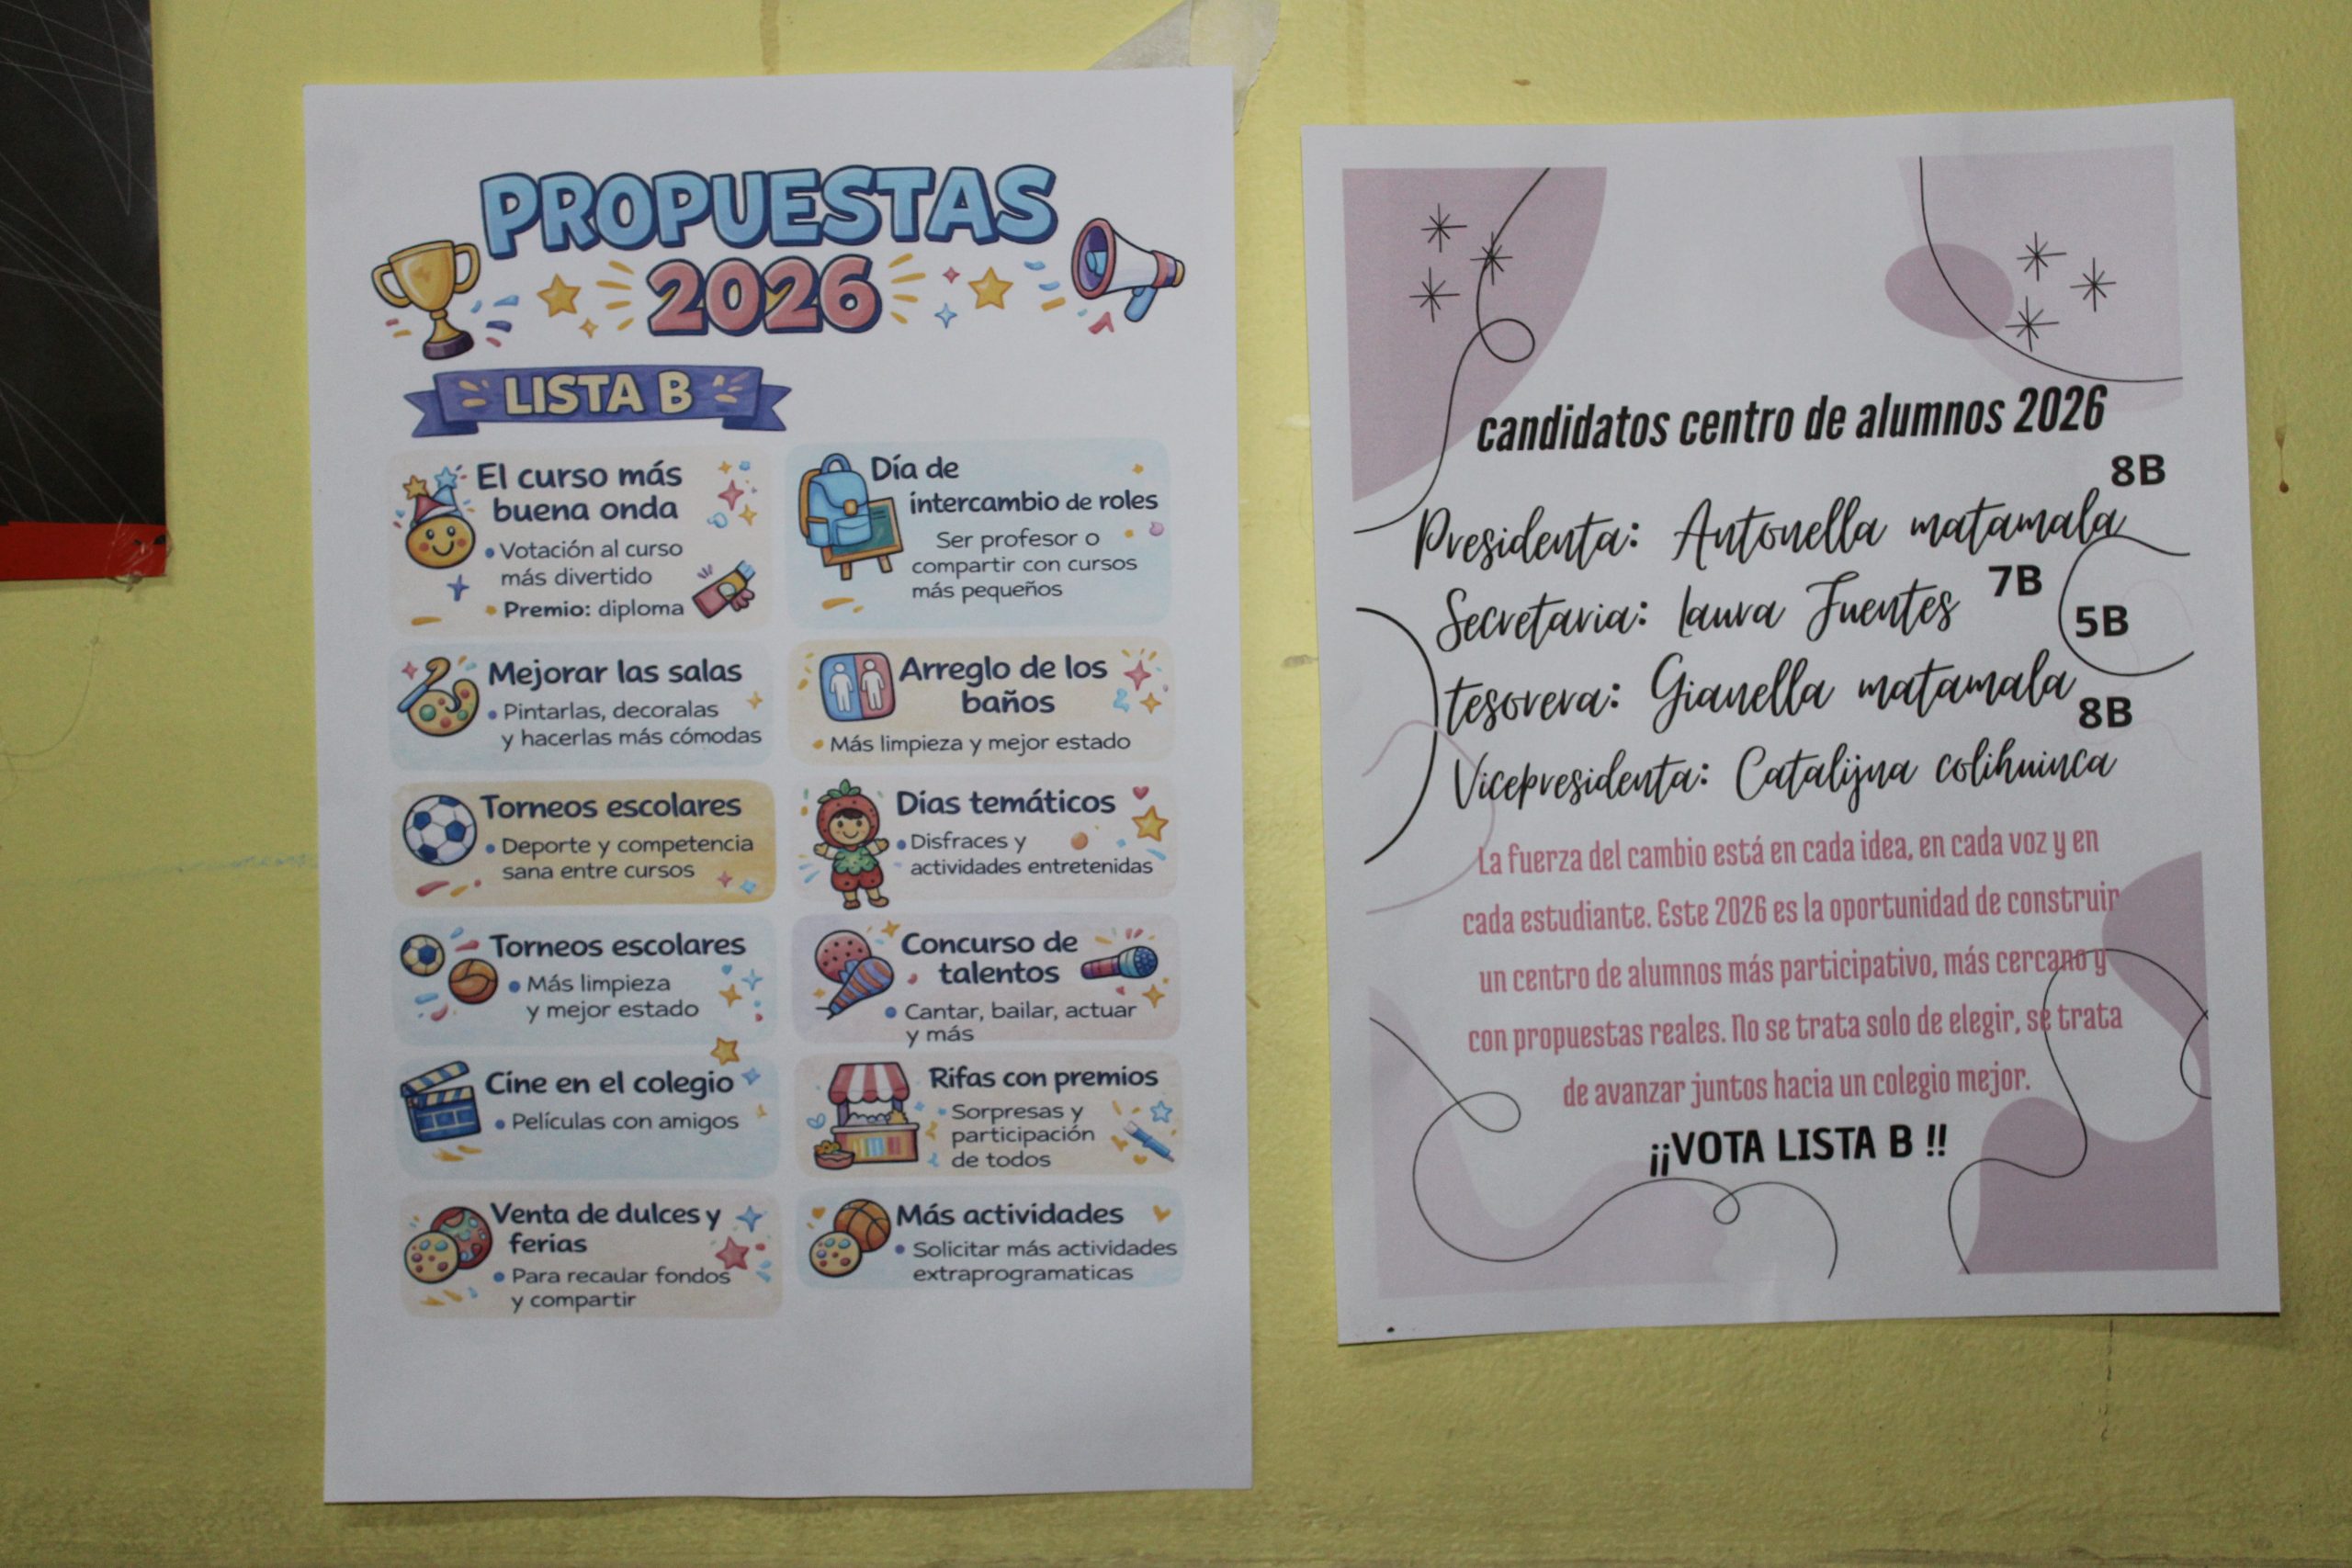 PROPUESTAS
2026
LISTA B
El curso más
buena onda
• Votación al curso
más divertido
• Premio: diploma
Día de
intercambio de roles
Ser profesor o
compartir con cursos
más pequeños
Mejorar las salas
• Pintarlas, decoralas
y hacerlas más cómodas
Arreglo de los
baños
• Más limpieza y mejor estado
Torneos escolares
• Deporte y competencia
sana entre cursos
Días temáticos
• Disfraces y
actividades entretenidas
Torneos escolares
• Más limpieza
y mejor estado
Concurso de
talentos
• Cantar, bailar, actuar
y más
Cine en el colegio
• Películas con amigos
Rifas con premios
• Sorpresas y
participación
de todos
Venta de dulces y
ferias
• Para recaular fondos
y compartir
Más actividades
• Solicitar más actividades
extraprogramaticas
candidatos centro de alumnos 2026
8B
Presidenta: Antonella matamala
7B
Secretaria: Laura Fuentes
5B
tesorera: Gianella matamala
8B
Vicepresidenta: Catalijna colihuinca
La fuerza del cambio está en cada idea, en cada voz y en
cada estudiante. Este 2026 es la oportunidad de construir
un centro de alumnos más participativo, más cercano y
con propuestas reales. No se trata solo de elegir, se trata
de avanzar juntos hacia un colegio mejor.
¡¡VOTA LISTA B !!